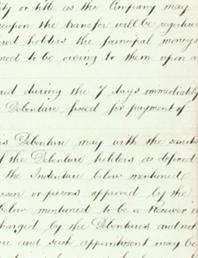 ty or title as the Company may
upon the transfer will be registered
ered holders the principal moneys
ned to be owing to them upon a
red during the 7 days immediately
Debenture fixed for payment of
is Debenture may with the
of the Debenture holders as
the Indenture below mentioned
erson or persons approved by the
below mentioned to be a Receiver or
charged by the Debentures and not
and such appointment may be